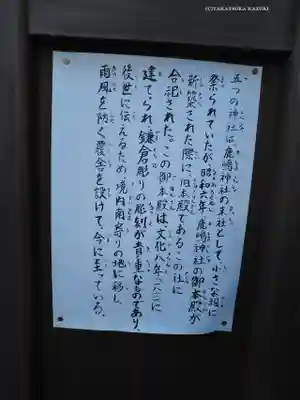 ©TAKATSUKA KAZUKI
五つの神社は鹿嶋神社の末社として、小さな祠に
祭られていたが、昭和六年鹿嶋神社の御本殿が
新築された際に、旧本殿であるこの社に
合祀された。この御本殿は文化八年(一八一一)に
建てられ、鎌倉彫りの彫刻が貴重なものであり、
後世に伝えるため、境内南寄りの地に移し、
雨風を防ぐ覆舎を設けて、今に至っている。